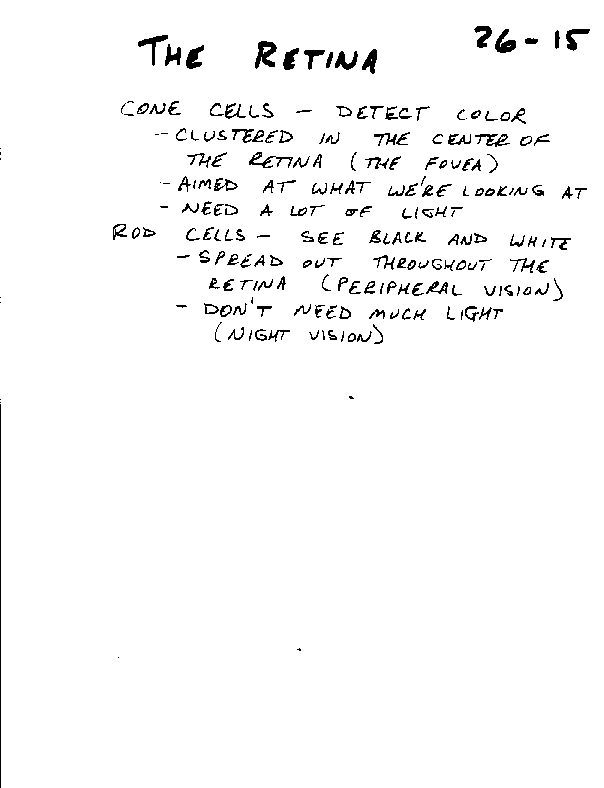 26-15
THE RETINA
CONE CELLS - DETECT COLOR
- CLUSTERED IN THE CENTER OF
THE RETINA (THE FOVEA)
- AIMED AT WHAT WE'RE LOOKING AT
- NEED A LOT OF LIGHT
ROD CELLS - SEE BLACK AND WHITE
- SPREAD OUT THROUGHOUT THE
RETINA (PERIPHERAL VISION)
- DON'T NEED MUCH LIGHT
(NIGHT VISION)